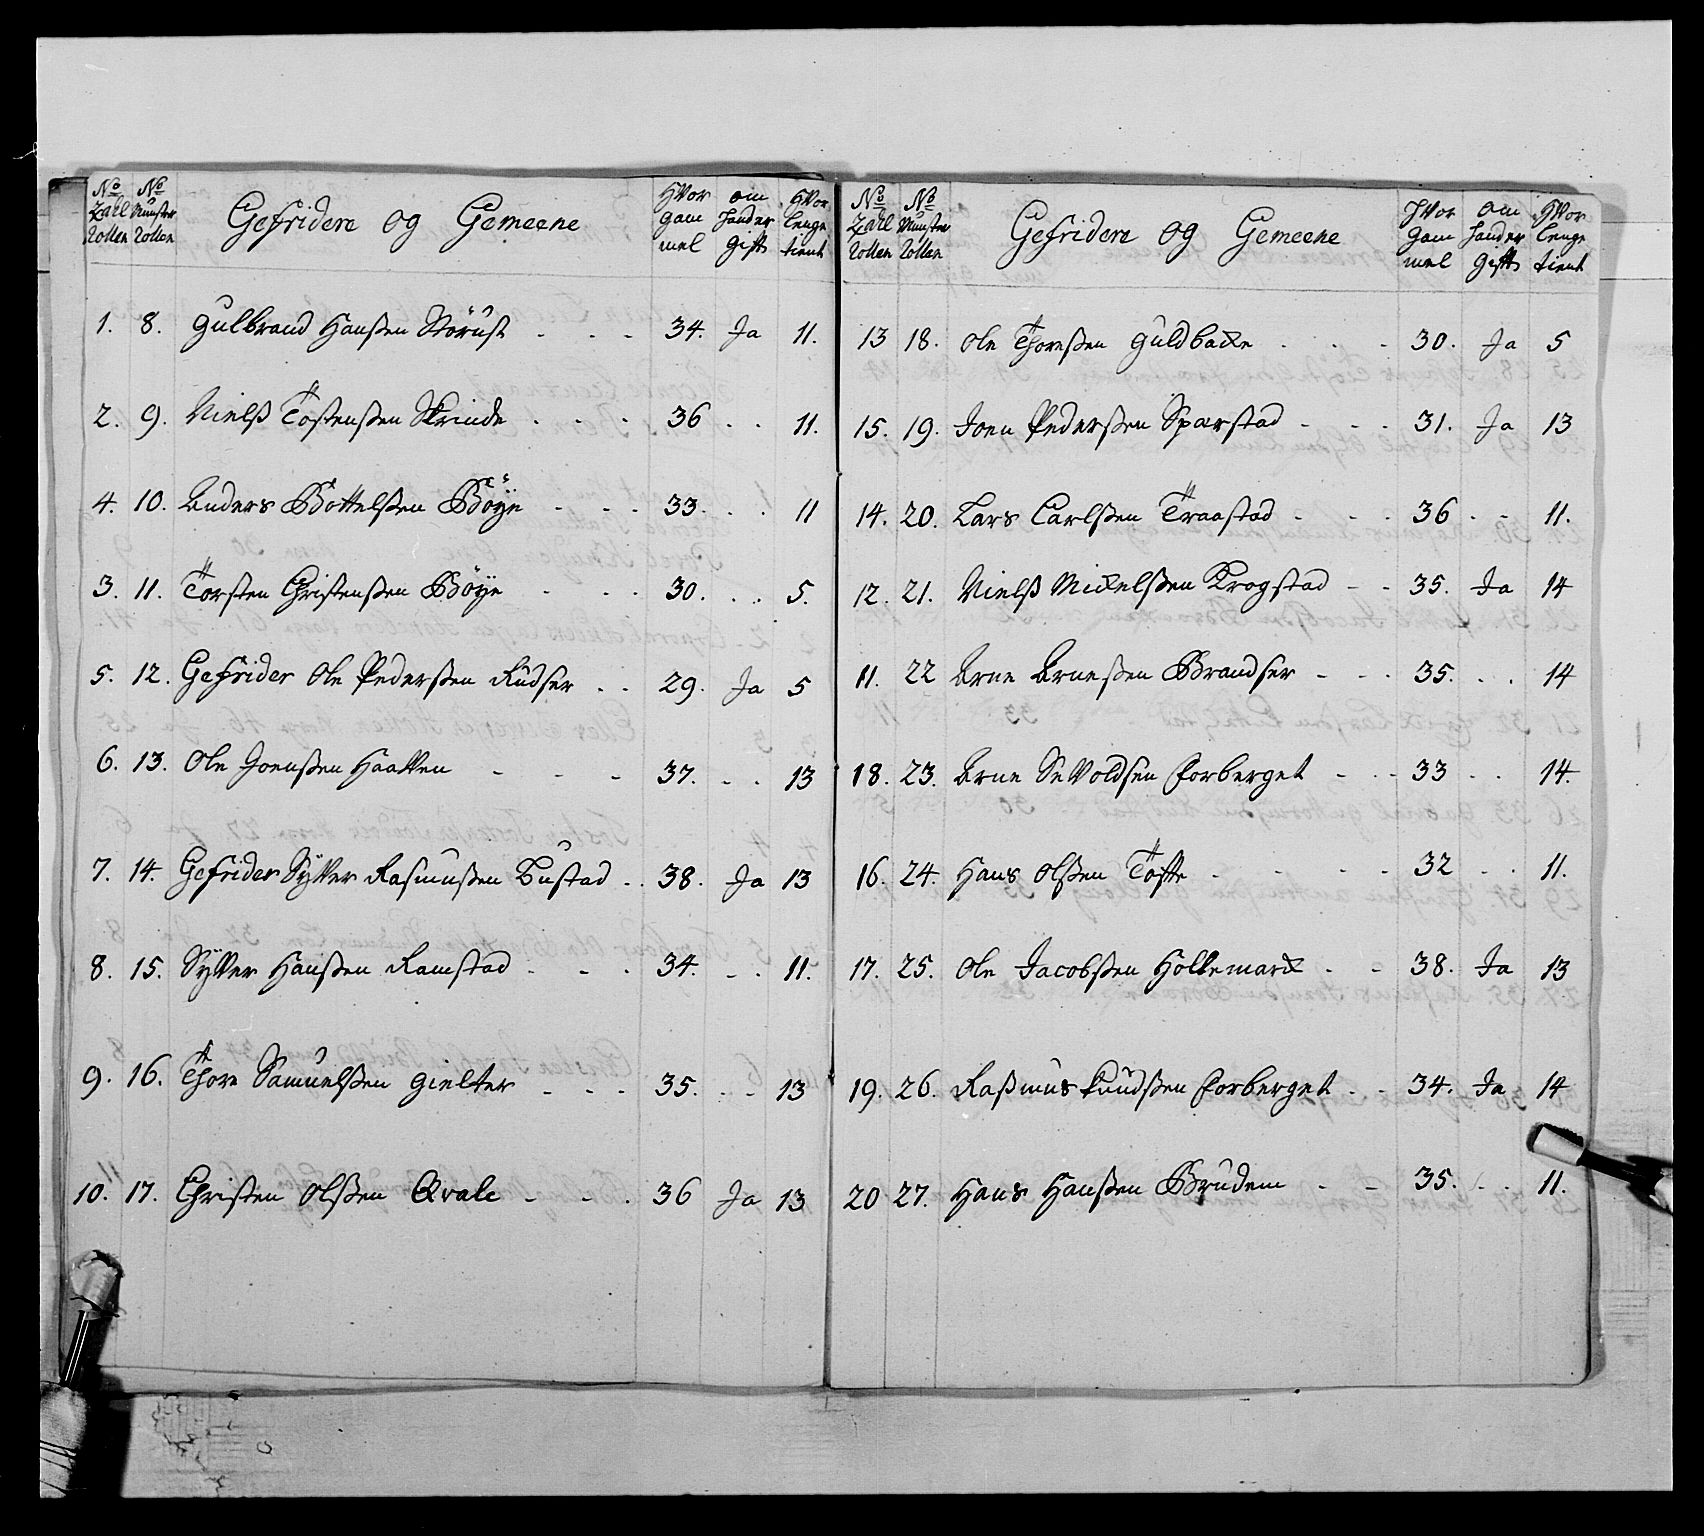 No Zahl Rollen | No Munster Rollen | Gefridere og Gemeene | HVor gam mel | om Hand er gift | HVor lenge tient
1. 8. Gulbrand Hanßen Störust - - - 34. Ja 11.
2. 9. Nielß Tostenßen Skrinde - - - 36 - - 11.
4. 10. Anders Bottelßen Böÿe - - - 33. - - 11
3. 11. Torsten Christenßen Böÿe - - - 30. - - 5.
5. 12. Gefrider Ole Pederßen Rudser - - 29. Ja 5
6. 13. Ole Joenßen Haatten - - - 37. - - 13
7. 14. Gefrider Sÿver Rasmusßen Bustad - - 38. Ja 13
8. 15. Sÿver Hanßen Ramstad - - - 34. - - 11.
9. 16. Thore Samuelßen Gielter - - - 35. - - 13
10. 17. Christen Olßen Qvale - - - 36 Ja 13
No Zahl Rollen | No Munster Rollen | Gefridere og Gemeene | HVor gam mel | om Hand er gift | HVor lenge tient
13 18. Ole Thoreßen Guldbacke - - - 30. Ja 5
15. 19. Joen Pederßen Sparstad - - - 31. Ja 13
14. 20. Lars Carlßen Traastad - - - 36 - - 11.
12. 21. Nielß Mickelßen Krogstad - - 35. Ja 14
11. 22 Arne Arneßen Brandser - - - 35. - - 14
18. 23. Arne Sevoldsen Forberget - - - 33 - - 14.
16. 24. Hans Olßen Tofte - - - - 32 - - 11.
17. 25. Ole Jacobßen Hollemarck - - 38. Ja 13
19. 26. Raßmus Knudßen Forberget - - 34. Ja 14
20 27. Hans Hanßen Brudem - - 35. - - 11.